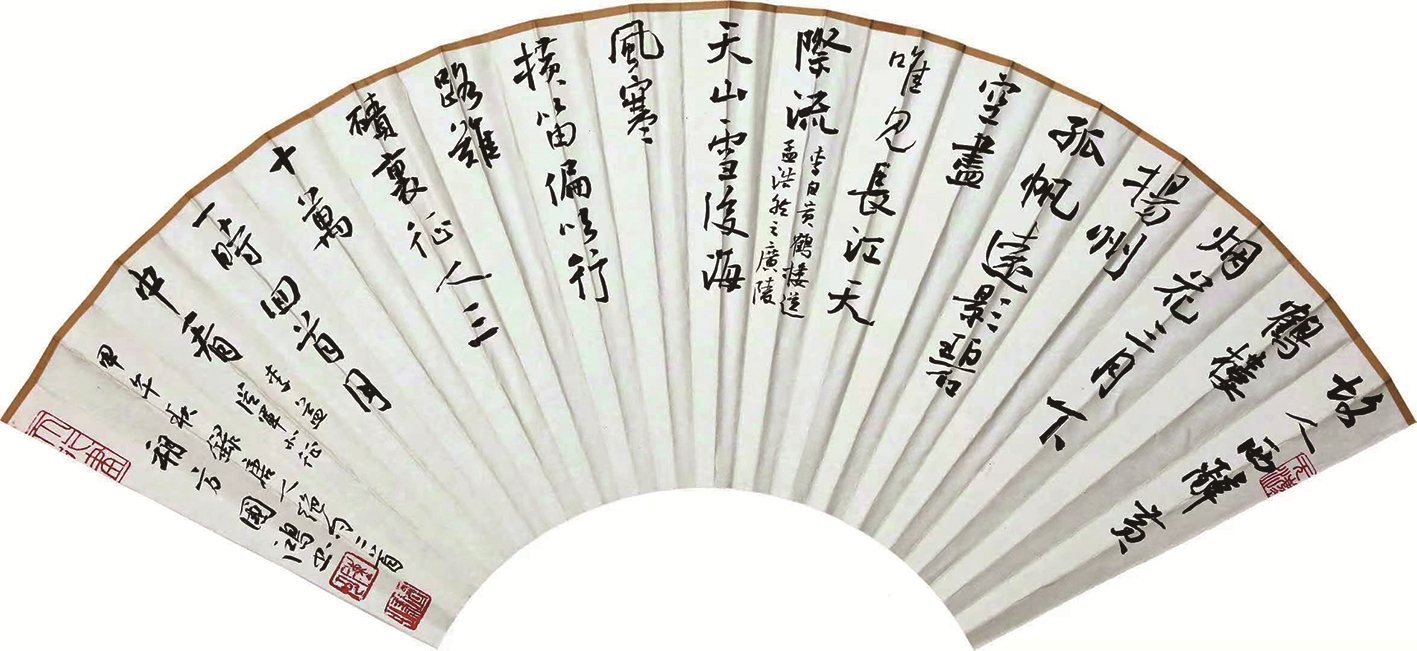 故人西辭黃
鶴樓
烟花三月下
揚州
孤帆遠影碧
空盡
唯見長江天
際流
李白黃鶴樓送
孟浩然之廣陵
天山雪後海
風寒
橫笛偏吹行
路難
磧裏征人三
十萬
一時回首月
中看
李益
從軍北征
甲午秋錄唐人絕句二首
朔方國鴻書